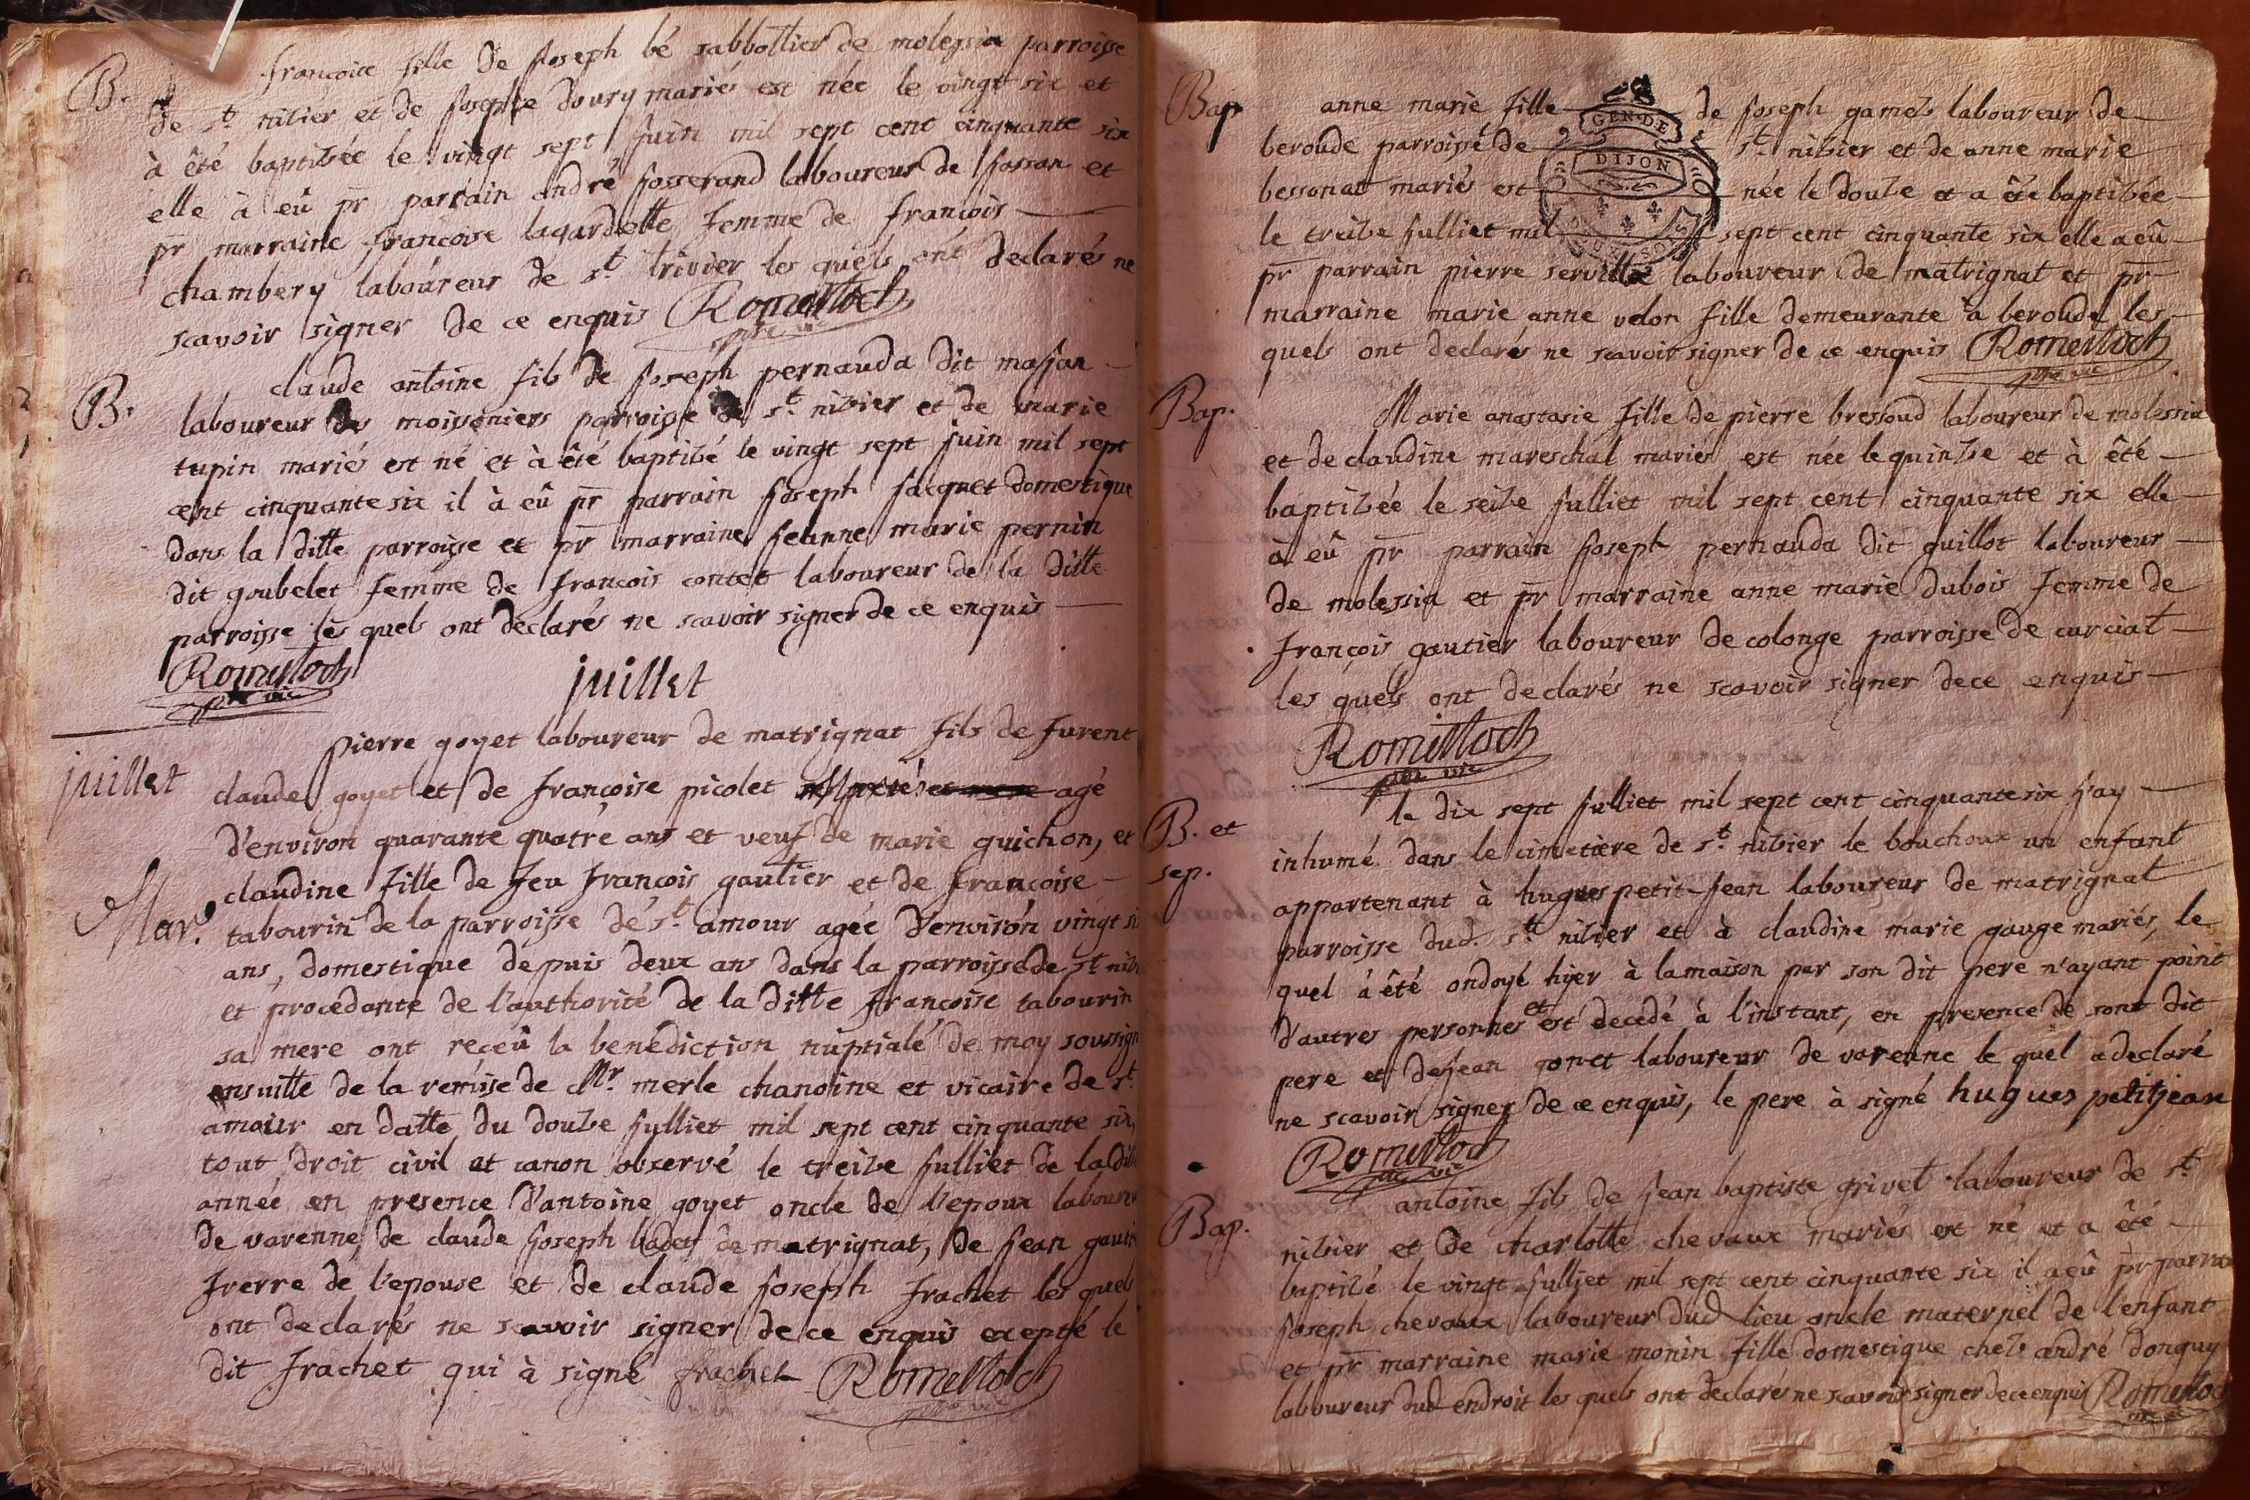 B.
françoise fille de Joseph bé sabbottier de molessia parroisse
de st. nizier et de Josephte doury mariés est née le vingt six et
à êté baptizée le vingt sept Juin mil sept cent cinquante six
elle à eû pr parrain andré Josserand laboureur de et
pr marraine françoise lagardette femme de françois
chambery laboureur de st. trivier les quels ont declarés ne
scavoir signer de ce enquis Romilloch
ptre vic
B.
claude antoine fils de Joseph pernauda dit masjan
laboureur des moissoniers parroisse de st. nizier et de marie
tupin mariés est né et à êté baptizé le vingt sept Juin mil sept
cent cinquante six il à eû pr parrain Joseph Jacquet domestique
dans la ditte parroisse et pr marraine Jeanne marie pernin
dit goubelet femme de françois contet laboureur de la ditte
parroisse les quels ont declarés ne scavoir signer de ce enquis
Romilloch
ptre vic
juillet
juillet
pierre goyet laboureur de matrignat fils de furent
claude goyet et de françoise picolet agé
d'environ quarante quatre ans et veuf de marie guichon, et
claudine fille de feu françois gautier et de françoise
Mar.
tabourin de la parroisse de st. amour agée d'environ vingt si
ans, domestique depuis deux ans dans la parroisse de st niz
et procedante de l'authorité de la ditte françoise tabourin
sa mere ont receû la benediction nuptiale de moy soussign
ensuitte de la remisse de Mr. merle chanoine et vicaire de st.
amour en datte du douze Julliet mil sept cent cinquante six,
tout droit civil et canon observé le treize Julliet de la dit
année en presence d'antoine goyet oncle de l'epoux laboureu
de varenne, de claude Joseph badet de matrignat, de Jean gauti
frerre de l'epouse et de claude Joseph frachet les quels
ont declarés ne scavoir signer de ce enquis excepté le
dit frachet qui à signé frachet Romilloch
ptre vic
Bap
anne marie fille de Joseph gamet laboureur de
beroude parroisse de st. nizier et de anne marie
bessonat mariés est née le douze et a êté baptizée
le treize Julliet mil sept cent cinquante six elle a eû
pr parrain pierre serville laboureur de matrignat et pr
marraine marie anne velon fille demeurante à beroude les
quels ont declarés ne scavoir signer de ce enquis Romilloch
ptre vic
GEN. DE
DIJON
Bap.
Marie anastasie fille de pierre bressoud laboureur de molessia
et de claudine mareschal mariés est née le quinze et à êté
baptizée le seize Julliet mil sept cent cinquante six elle
à eû pr parrain Joseph pernauda dit guillot laboureur
de molessia et pr marraine anne marie dubois femme de
françois gautier laboureur de colonge parroisse de curciat
les quels ont declarés ne scavoir signer de ce enquis
Romilloch
ptre vic
B. et
sep.
le dix sept Julliet mil sept cent cinquante six J'ay
inhumé dans le cimetiere de st. nizier le bouchoux un enfant
appartenant à hugues petit-Jean laboureur de matrignat
parroisse dud. st. nizier et à claudine marie gauge mariés, le
quel à êté ondoyé hyer à la maison par son dit pere n'ayant point
d'autres personnes et est decedé à l'instant, en presence de sont dit
pere et de Jean gonet laboureur de varenne le quel a declaré
ne scavoir signer de ce enquis, le pere à signé hugues petitjean
Romilloch
ptre vic
Bap.
antoine fils de Jean baptiste grivet laboureur de st.
nizier et de charlotte chevaux mariés est né et a êté
baptizé le vingt Julliet mil sept cent cinquante six il a eû pr parrain
Joseph chevaux laboureur dud lieu oncle maternel de l'enfant
et pr marraine marie monin fille domestique chez andré donguy
laboureur dud endroit les quels ont declarés ne scavoir signer de ce enquis Romilloch
ptre vic